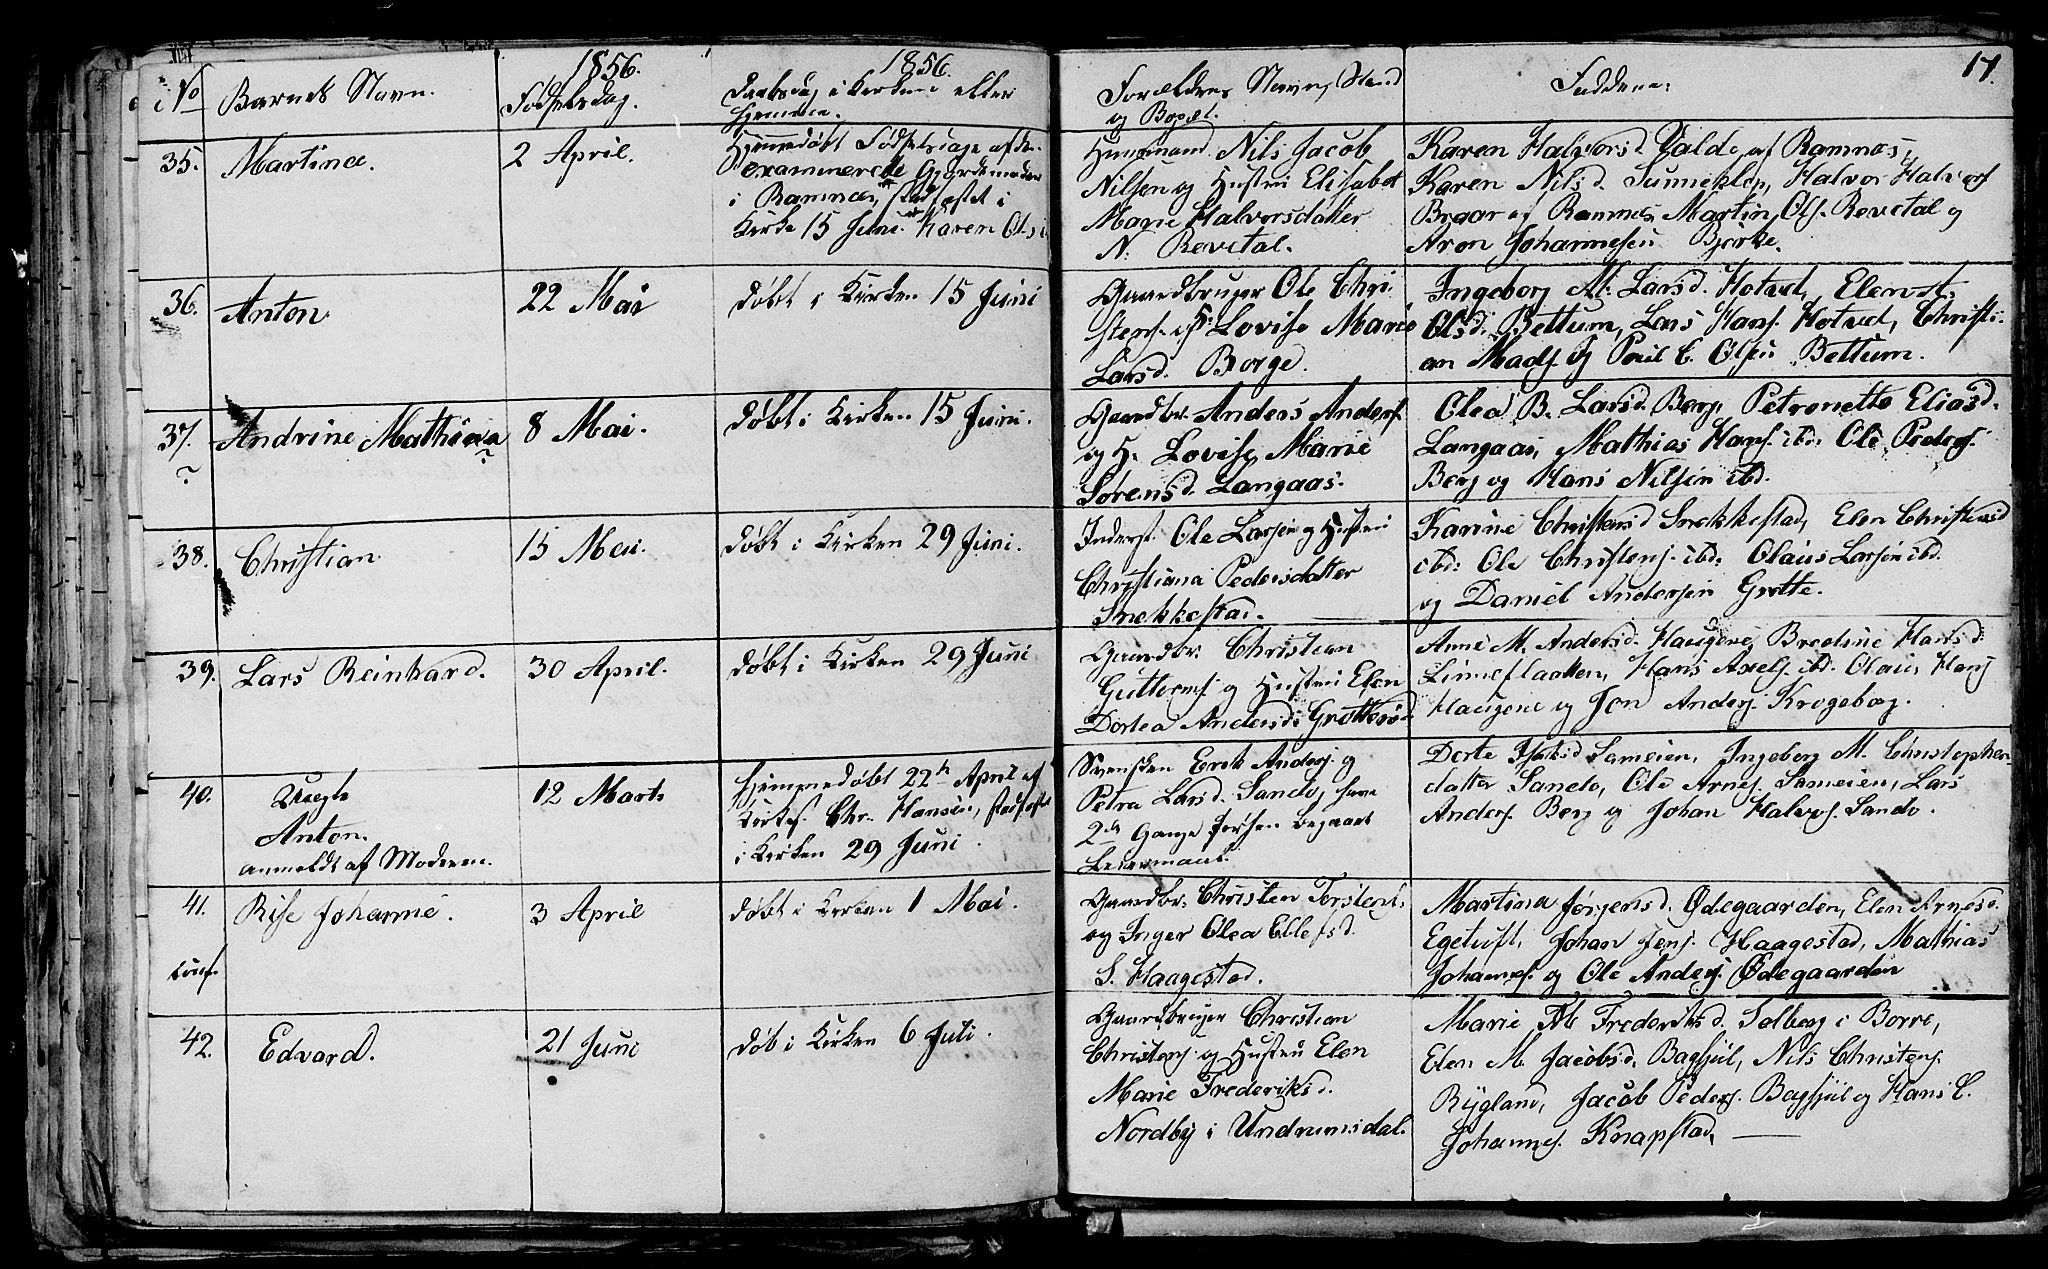 17.
No
Barnets Navn.
1856.
Fødselsdag.
1856.
Daabsdag i Kirken eller
Hjemme.
Forældres Navn, Stand
og Bopæl.
Faddere.
35.
Martina.
2 April.
Hjemmedøbt Fødselsdage af den
examinerede Gjordemoder
i Ramnæs, stadfæstet i
Kirke 15 Juni. Karen Ols
Huusmand Nils Jacob
Nilsen og Hustru Elisabet
Marie Halvorsdatter
N. Revetal.
Karen Halvorsd. Valde af Ramnæs,
Karen Nilsd. Halvor Halvors
Braar af Ramnes, Martin Ols. Revetal og
Aron Johannesen Bjerke.
36.
Anton
22 Mai
døbt i Kirken 15 Juni
Gaardbruger Ole Chri
stens. og H. Lovise Marie
Larsd. Borge.
Ingeborg M. Larsd. Hotvet,
Olsd. Bettum, Lars Hans. Hotvet, Christi-
an Mads. og Paul C. Olsen Bettum.
37.
?
Andrine Mathiea
?
8 Mai.
døbt i Kirken 15 Juni.
Gaardbr. Anders Anders.
og H. Lovise Marie
Sørensd. Langaas.
Olea B. Larsd. Berg, Petronette Eliasd.
Langaas, Mathias Hans. ibd. Ole Peders.
Berg og Hans Nilsen ibd.
38.
Christian
15 Mai.
døbt i Kirken 29 Juni.
Inderst. Ole Larsen og Hustru
Christiana Pedersdatter
Snekkestad.
Karine Christensd. Snekkestad, Elen Christensd
ibd. Ole Christens. ibd. Olaus Larsen ibd.
og Daniel Andersen Grette.
39.
Lars Reinhard.
30 April.
døbt i Kirken 29 Juni
Gaardbr. Christian
Guttorms. og Hustru Elen
Dortea Andersd. Grotterød
Anne M. Andersd. Haugene, Bredine Hansd.
Linneflaatten, Hans Axels. ibd. Olaus Hans.
Haugene og Jon Anders. Krogeborg.
40.
Uægte
Anton.
anmeldt af Moderen.
12 Marts
hjemmedøbt 22de April af
Kirkes. Chr. Hansen, stadfæstet
i Kirken 29 Juni.
Svensken Erik Anders. og
Petra Larsd. Sando, have
2de Gange forhen begaaet
Leiermaal.
Dorte Jakobsd. Sameien, Ingeborg M. Christopher-
datter Sando, Ole Arnes. Sameien, Lars
Anders. Berg og Johan Halvors. Sando.
41.
Rise Johanne.
3 April
døbt i Kirken 1 Mai.
Gaardbr. Christen Torstens.
og Inger Olea Ellefsd.
S. Haagestad.
Martina Jørgensd. Ødegaarden, Elen Arnesd.
Egetuft, Johan Jens. Haagestad, Mathias
Johannes. og Ole Anders. Ødegaarden
42.
Edvard.
21 Juni
døb i Kirken 6 Juli.
Gaardbruger Christian
Christens. og Hustru Elen
Marie Frederiksd.
Nordby i Undrumsdal.
Marie M. Frederiksd. Solberg i Borre,
Elen M. Jacobsd. Bagsjul, Nils Christens.
Rygland, Jacob Peders. Bagsjul og Hans C.
Johannes. Knapstad,